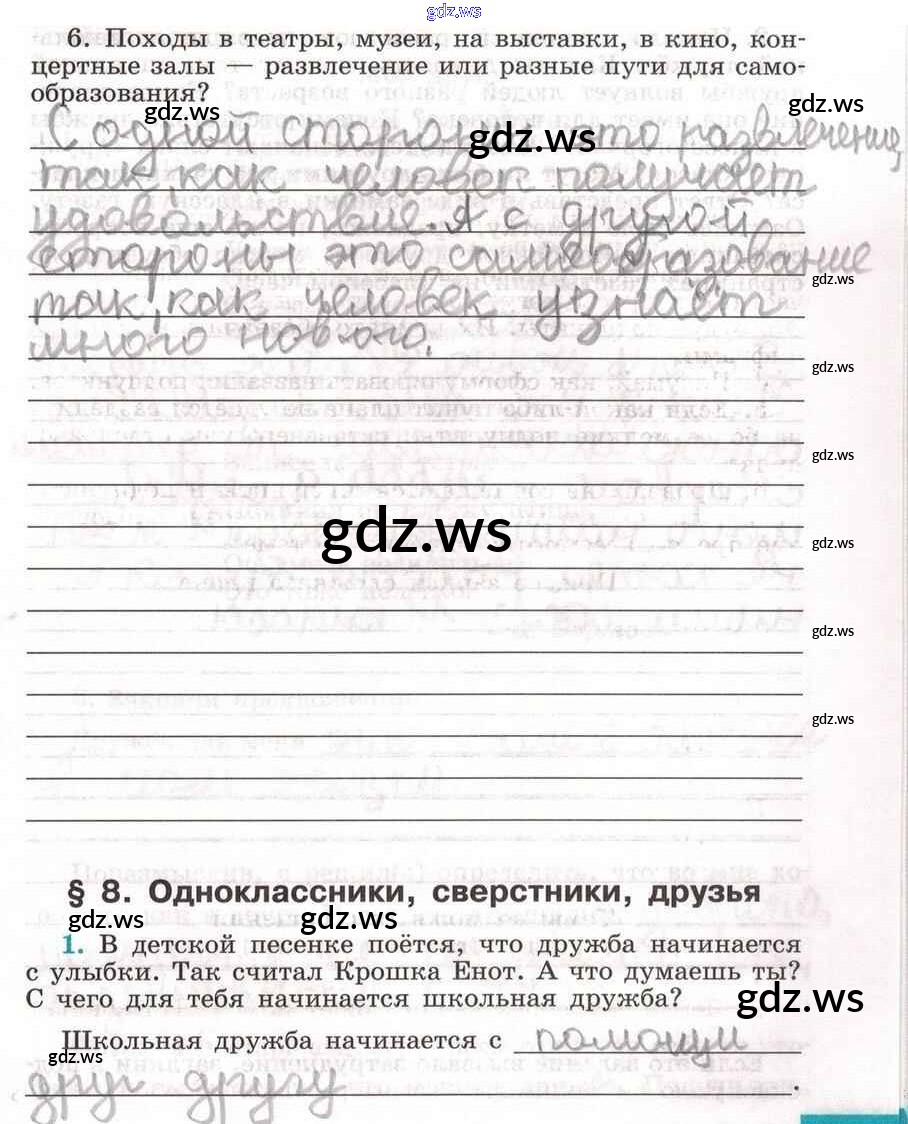 gdz.ws
6. Походы в театры, музеи, на выставки, в кино, кон-
цертные залы — развлечение или разные пути для само-
образования?
gdz.ws
gdz.ws
С одной стороны это развлечение,
gdz.ws
так как человек получает
удовольствие. А с другой
стороны это самообразование
gdz.ws
так как человек узнаёт
много нового.
gdz.ws
gdz.ws
gdz.ws
gdz.ws
gdz.ws
gdz.ws
§ 8. Одноклассники, сверстники, друзья
gdz.ws
gdz.ws
1. В детской песенке поётся, что дружба начинается
с улыбки. Так считал Крошка Енот. А что думаешь ты?
С чего для тебя начинается школьная дружба?
gdz.ws
Школьная дружба начинается с помощи
gdz.ws
друг другу.